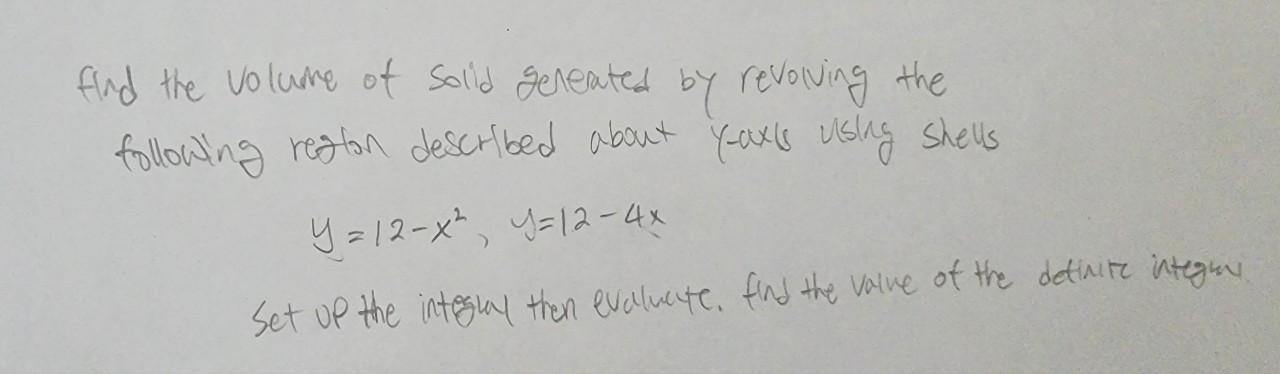 find the volume of solid generated by revolving the
following region described about y-axis using shells
y = 12 - x², y = 12 - 4x
Set up the integral then evaluate. find the value of the definite integral.